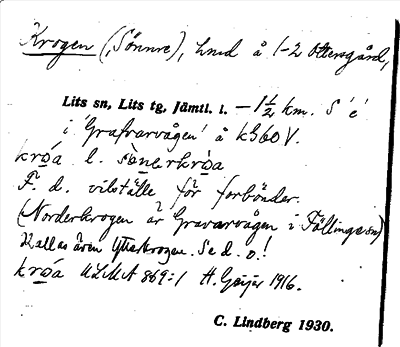 Krogen (Sönnre), lmd å 1-2 Ottersgård,
Lits sn, Lits tg, Jämtl. l. — 1½ km. S 'e'
i 'Grafvarvågen' å kG60V.
kroá l. sönerkroa
F. d. vilställe för forbönder.
(Norderkrogen är Gravarvågen i Föllinge sn)
Kallas även Ytterkrogen. Se d. o.!
kroá ULMA 869:1 H. Geijer 1916.
C. Lindberg 1930.